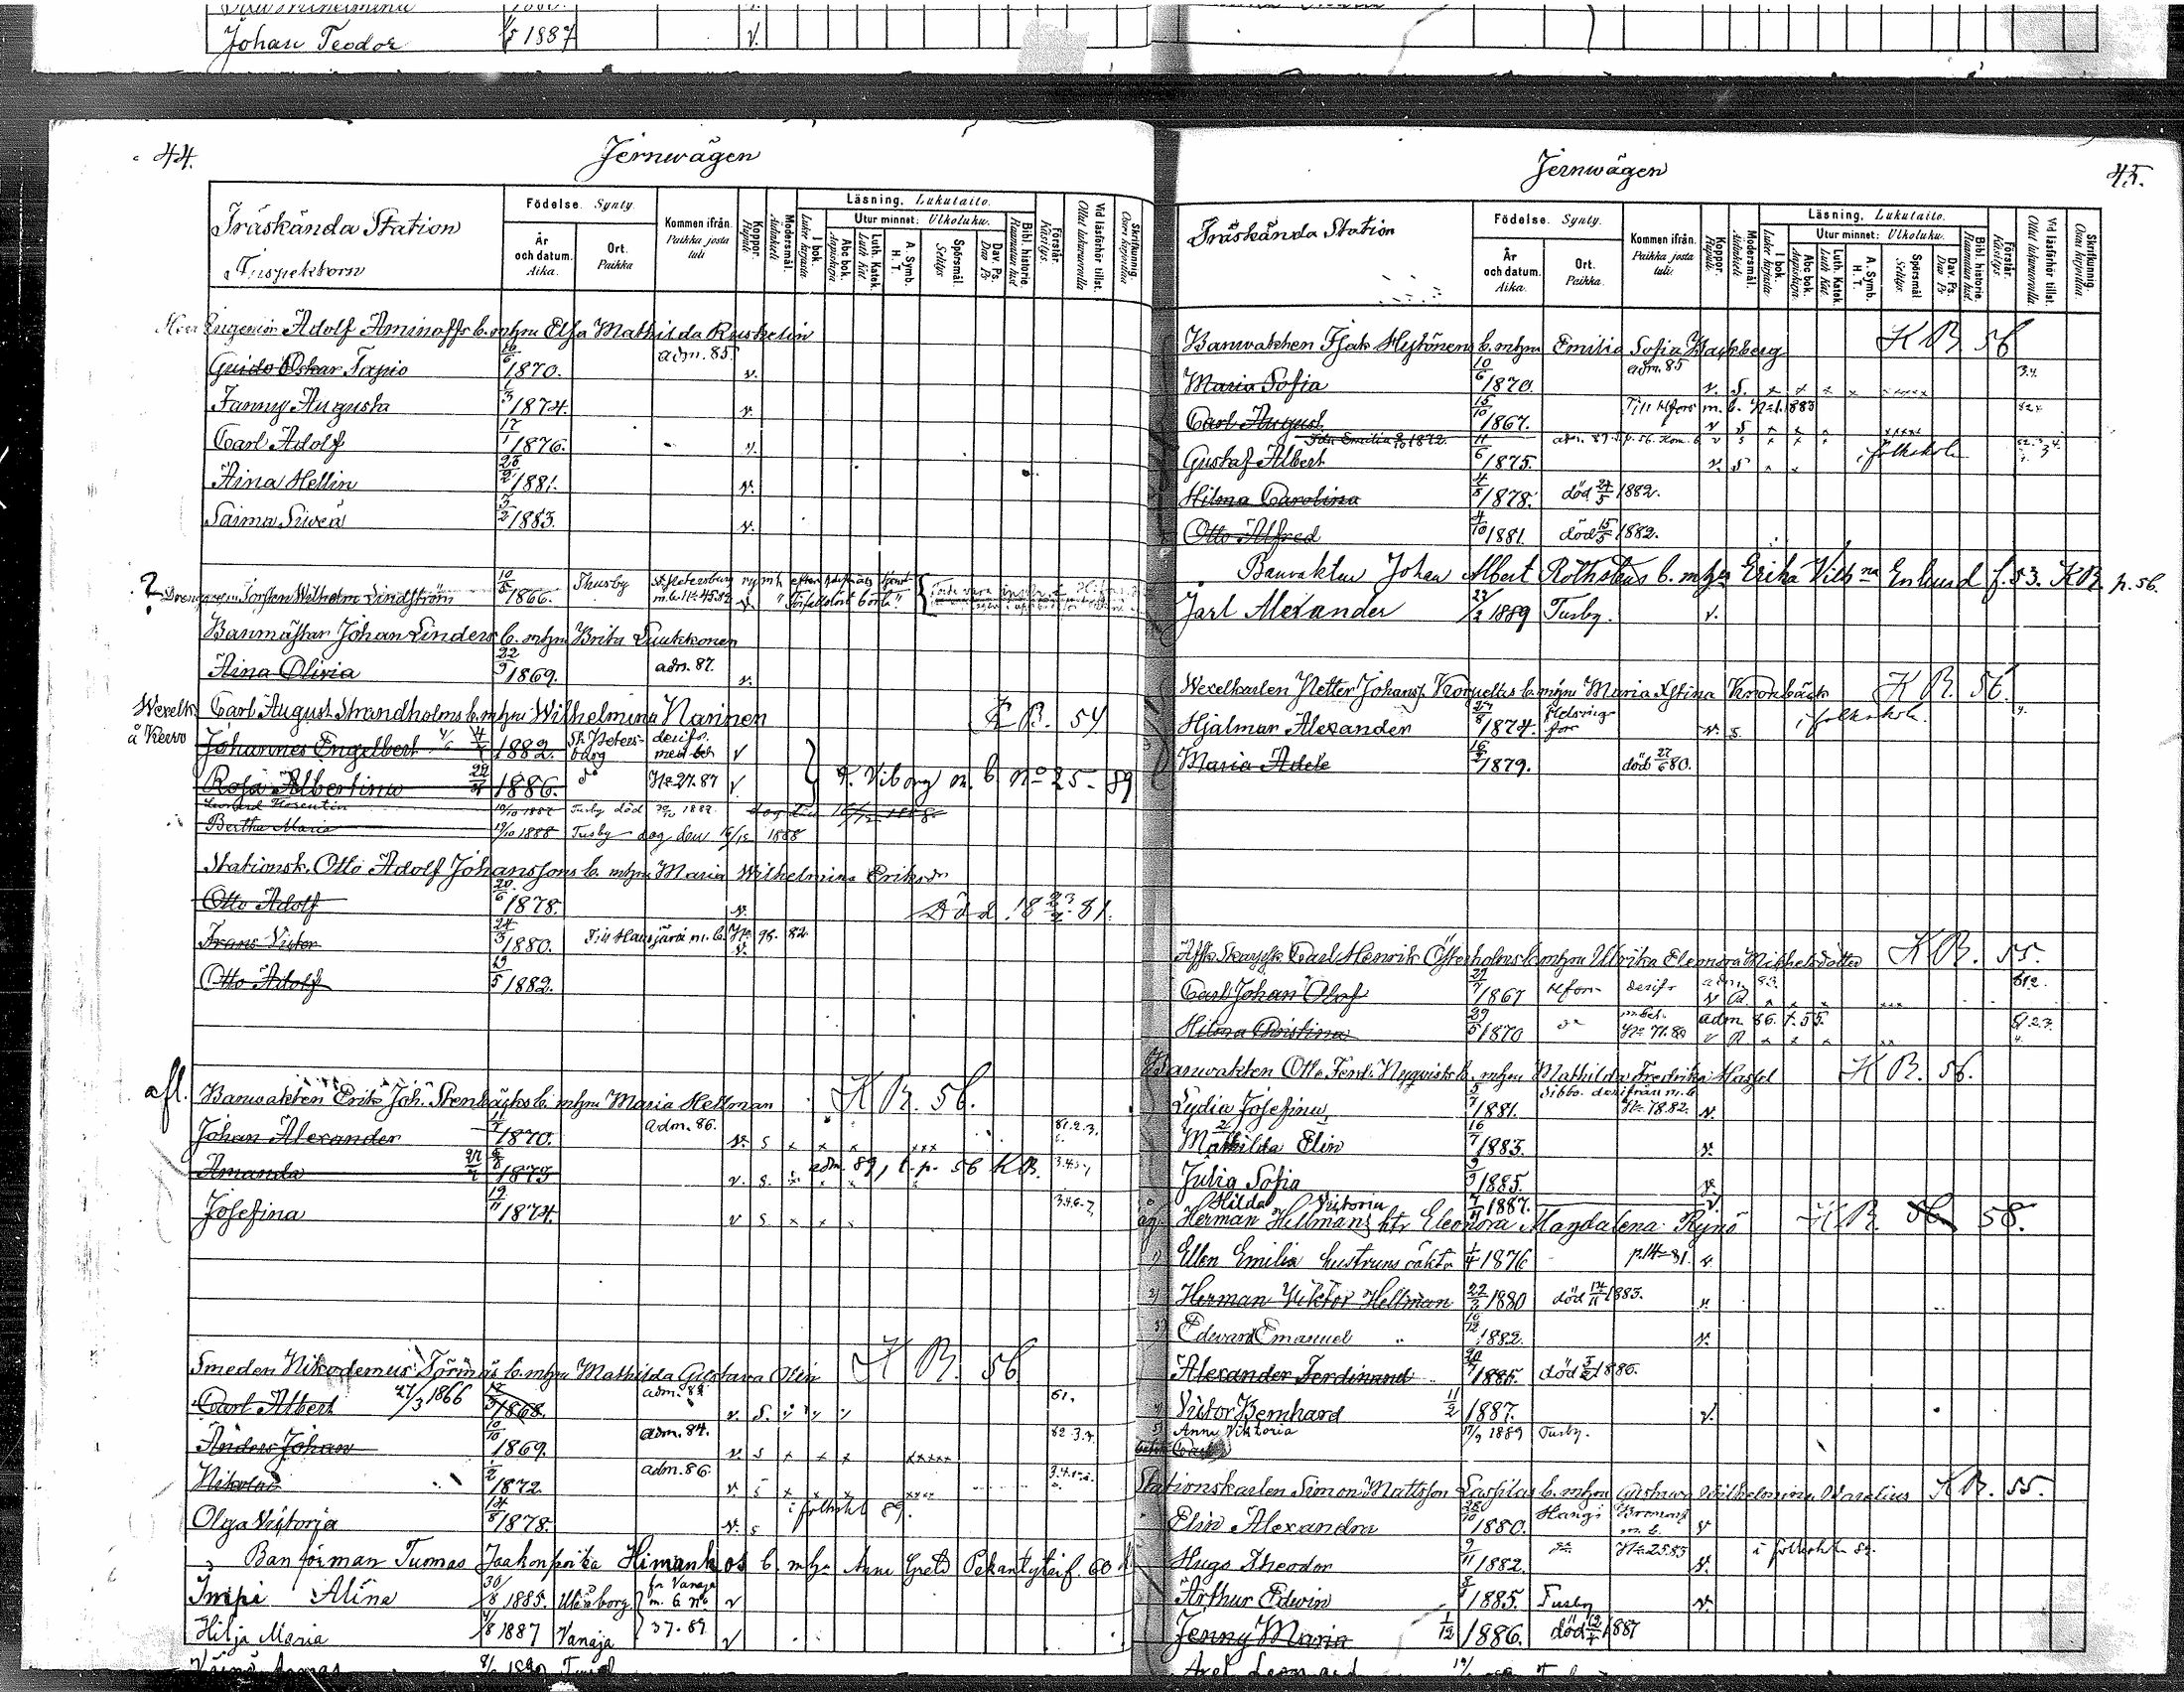 Johan Teodor 1/5 1887 v.
44. Jernwägen
Träskända Station
Inspektorn
Födelse. Synty.
År och datum. Aika.
Ort. Paikka
Kommen ifrån. Paikka josta tuli
Koppor. Rupuli.
Modersmål. Äidinkieli
Läsning. Lukutaito.
I bok. Lukee kirjasta
Utur minnet: Ulkoluku.
Abc bok. Aapiskirja.
Luth. Katek. Luth Kat.
A. Symb. H. T.
Spörsmål. Selitys
Dav. Ps. Dav Ps
Bibl. historie. Raamatun hist
Förstår. Käsitys.
Vid läsförhör tillst. Ollut lukuvuorolla
Skrifkunnig. Osaa kirjoittaa
Eugenion Adolf Aminoffs b. m. hn Elsa Mathilda Ruskelin
Guido Oskar Tapio 26/6 1870. adm. 85. v.
Fanny Augusta 1/3 1874. v.
Carl Adolf 17/1 1876. v.
Aina Hellin 28/2 1881. v.
Saima Sivea 3/2 1883. v.
? Torsten Wilhelm Lindström 10/5 1866. Thusby St. Petersburg m. b. No 45.82 v
Banmästar Johan Linders b. m hn Brita Luukkonen
Aina Olivia 22/9 1869. adm. 87. v.
Wexelk. å Kervo Carl August Strandholms b. mhn Wilhelmina Narinen K B. 54
Johannes Engelbert 1882. St. Petersborg derifr. med bet v
Rosa Albertina 1886. do No 27.87 v T. Viborg m. b. No 25-89
Leonard Florentin 10/10 1887 Tusby död 1887.
Bertha Maria 19/10 1888 Tusby dog den 16/12 1888
Stationsk. Otto Adolf Johanssons b. mhn Maria Wilhelmina Eriksdr
Otto Adolf 20/6 1878. v. Död 18 23/2 81.
Frans Victor 24/3 1880. Till Hausjärvi m. b. No 95. 82. v.
Otto Adolf 19/5 1882.
afl. Banvakten Erik Joh. Stenbäcks b. mhn Maria Hellman K B. 56.
Johan Alexander 1870. adm. 86. v. s x x x xxx 81.2.3.
Amanda 1873 v. s. adm. 89, t. p. 56 K B.
Josefina 19/11 1874. v s x x x 3.4.6.7.
Smeden Nikodemus Törmäs b. mhn Mathilda Gustava Olin K B. 56
Carl Albert 27/3 1866 1868. adm. v. S. 61.
Anders Johan 10/10 1869. adm. 84. v. s x x x xxxxx 82.3.4.
Nikolai 1/2 1872 adm. 86. v. s x x x xxxx
Olga Viktoria 14/8 1878. v. s i folkskol 89.
Banförman Tumas Jaakonpoika Himankos b. mhn Anna Greta f. 60
Impi Alina 30/8 1885. Uleåborg fr Vanaja m. b No v
Hilja Maria 4/8 1887 Vanaja 37.89 v
Jernwägen 45.
Träskända Station
Födelse. Synty.
År och datum. Aika.
Ort. Paikka.
Kommen ifrån. Paikka josta tuli:
Koppor. Rupuli.
Modersmål. Äidinkieli
Läsning. Lukutaito.
I bok. Lukee kirjasta
Utur minnet: Ulkoluku.
Abc bok. Aapiskirja.
Luth. Katek. Luth Kat.
A. Symb. H. T.
Spörsmål Selitys
Dav. Ps. Dav Ps
Bibl. historie. Raamatun hist.
Förstår. Käsitys.
Vid läsförhör tillst. Ollut lukuvuorolla
Skrifkunnig. Osaa kirjoittaa.
Banvakten Isak Hytönens b. mhn Emilia Sofia Backberg K B. 56
Maria Sofia 10/6 1870. adm. 85 v. S. x x x x xxxxx 3.4.
Carl August 15/10 1867. Till Hfors m. b. 1883 v S x x x xxxx 82.
Ida Emilia 1872. adm. 89. p. 56.
Gustaf Albert 11/6 1875. v. S x x i folkskola
Hilma Carolina 4/8 1878. död 24/5 1882.
Otto Alfred 4/10 1881. död 15/5 1882.
Banvakten Johan Albert Rothstens b. mhn Erika Vilhna Enlund f. 53. K B. p. 56.
Jarl Alexander 22/2 1889 Tusby. v.
Wexelkarlen Petter Johans. Kornettis b. mhn Maria Stina Kronbäck K B. 56.
Hjalmar Alexander 27/8 1874. Helsingfor v. s i folkskola
Maria Adele 16/2 1879. död 27/6 80.
Carl Henrik Österholms b. mhn Ulrika Eleonora Mikkelsdotter K B. 55.
Carl Johan Olof 22/7 1867 Hfors derifr adm. 83. x x x xxx 812.
Hilma Christina 29/5 1870 do m bet. No 71.80 adm 86. t. 55. x x x xx 81.2.3.
Banvakten Otto Ferd. Nyqvists b. mhn Mathilda Fredrika Hassel K B. 56.
Lydia Josefina 5/7 1881. Sibbo. derifrån m. b. No 78.82. v.
Mathilda Elin 16/7 1883. v.
Julia Sofia 3/9 1885. v.
Hilda Victoria 1887. v
Herman Hellmans htr Eleonora Magdalena Rynö K B. 56 58.
1) Ellen Emilia hustruns oäkta 1/4 1876 p. 14-81. v.
2) Herman Viktor Hellman 22/2 1880 död 1883. v.
3) Edvard Emanuel " 10/12 1882. v.
Alexander Ferdinand 1885. död 1886.
Victor Bernhard 11/2 1887. v.
5) Anna Viktoria 17/9 1889 Tusby.
Stationskarlen Simon Mattsson Lassilas b. mhn Gustava Wilhelmina Warelius K B. 55.
Elin Alexandra 28/10 1880. Hangö Bromarf m. b. v
Hugo Theodor 9/11 1882. No 25.85 v. i folkskola 89.
Arthur Edwin 1885. Tusby v.
Jenny Maria 1/12 1886. död 1887
Axel Leonard